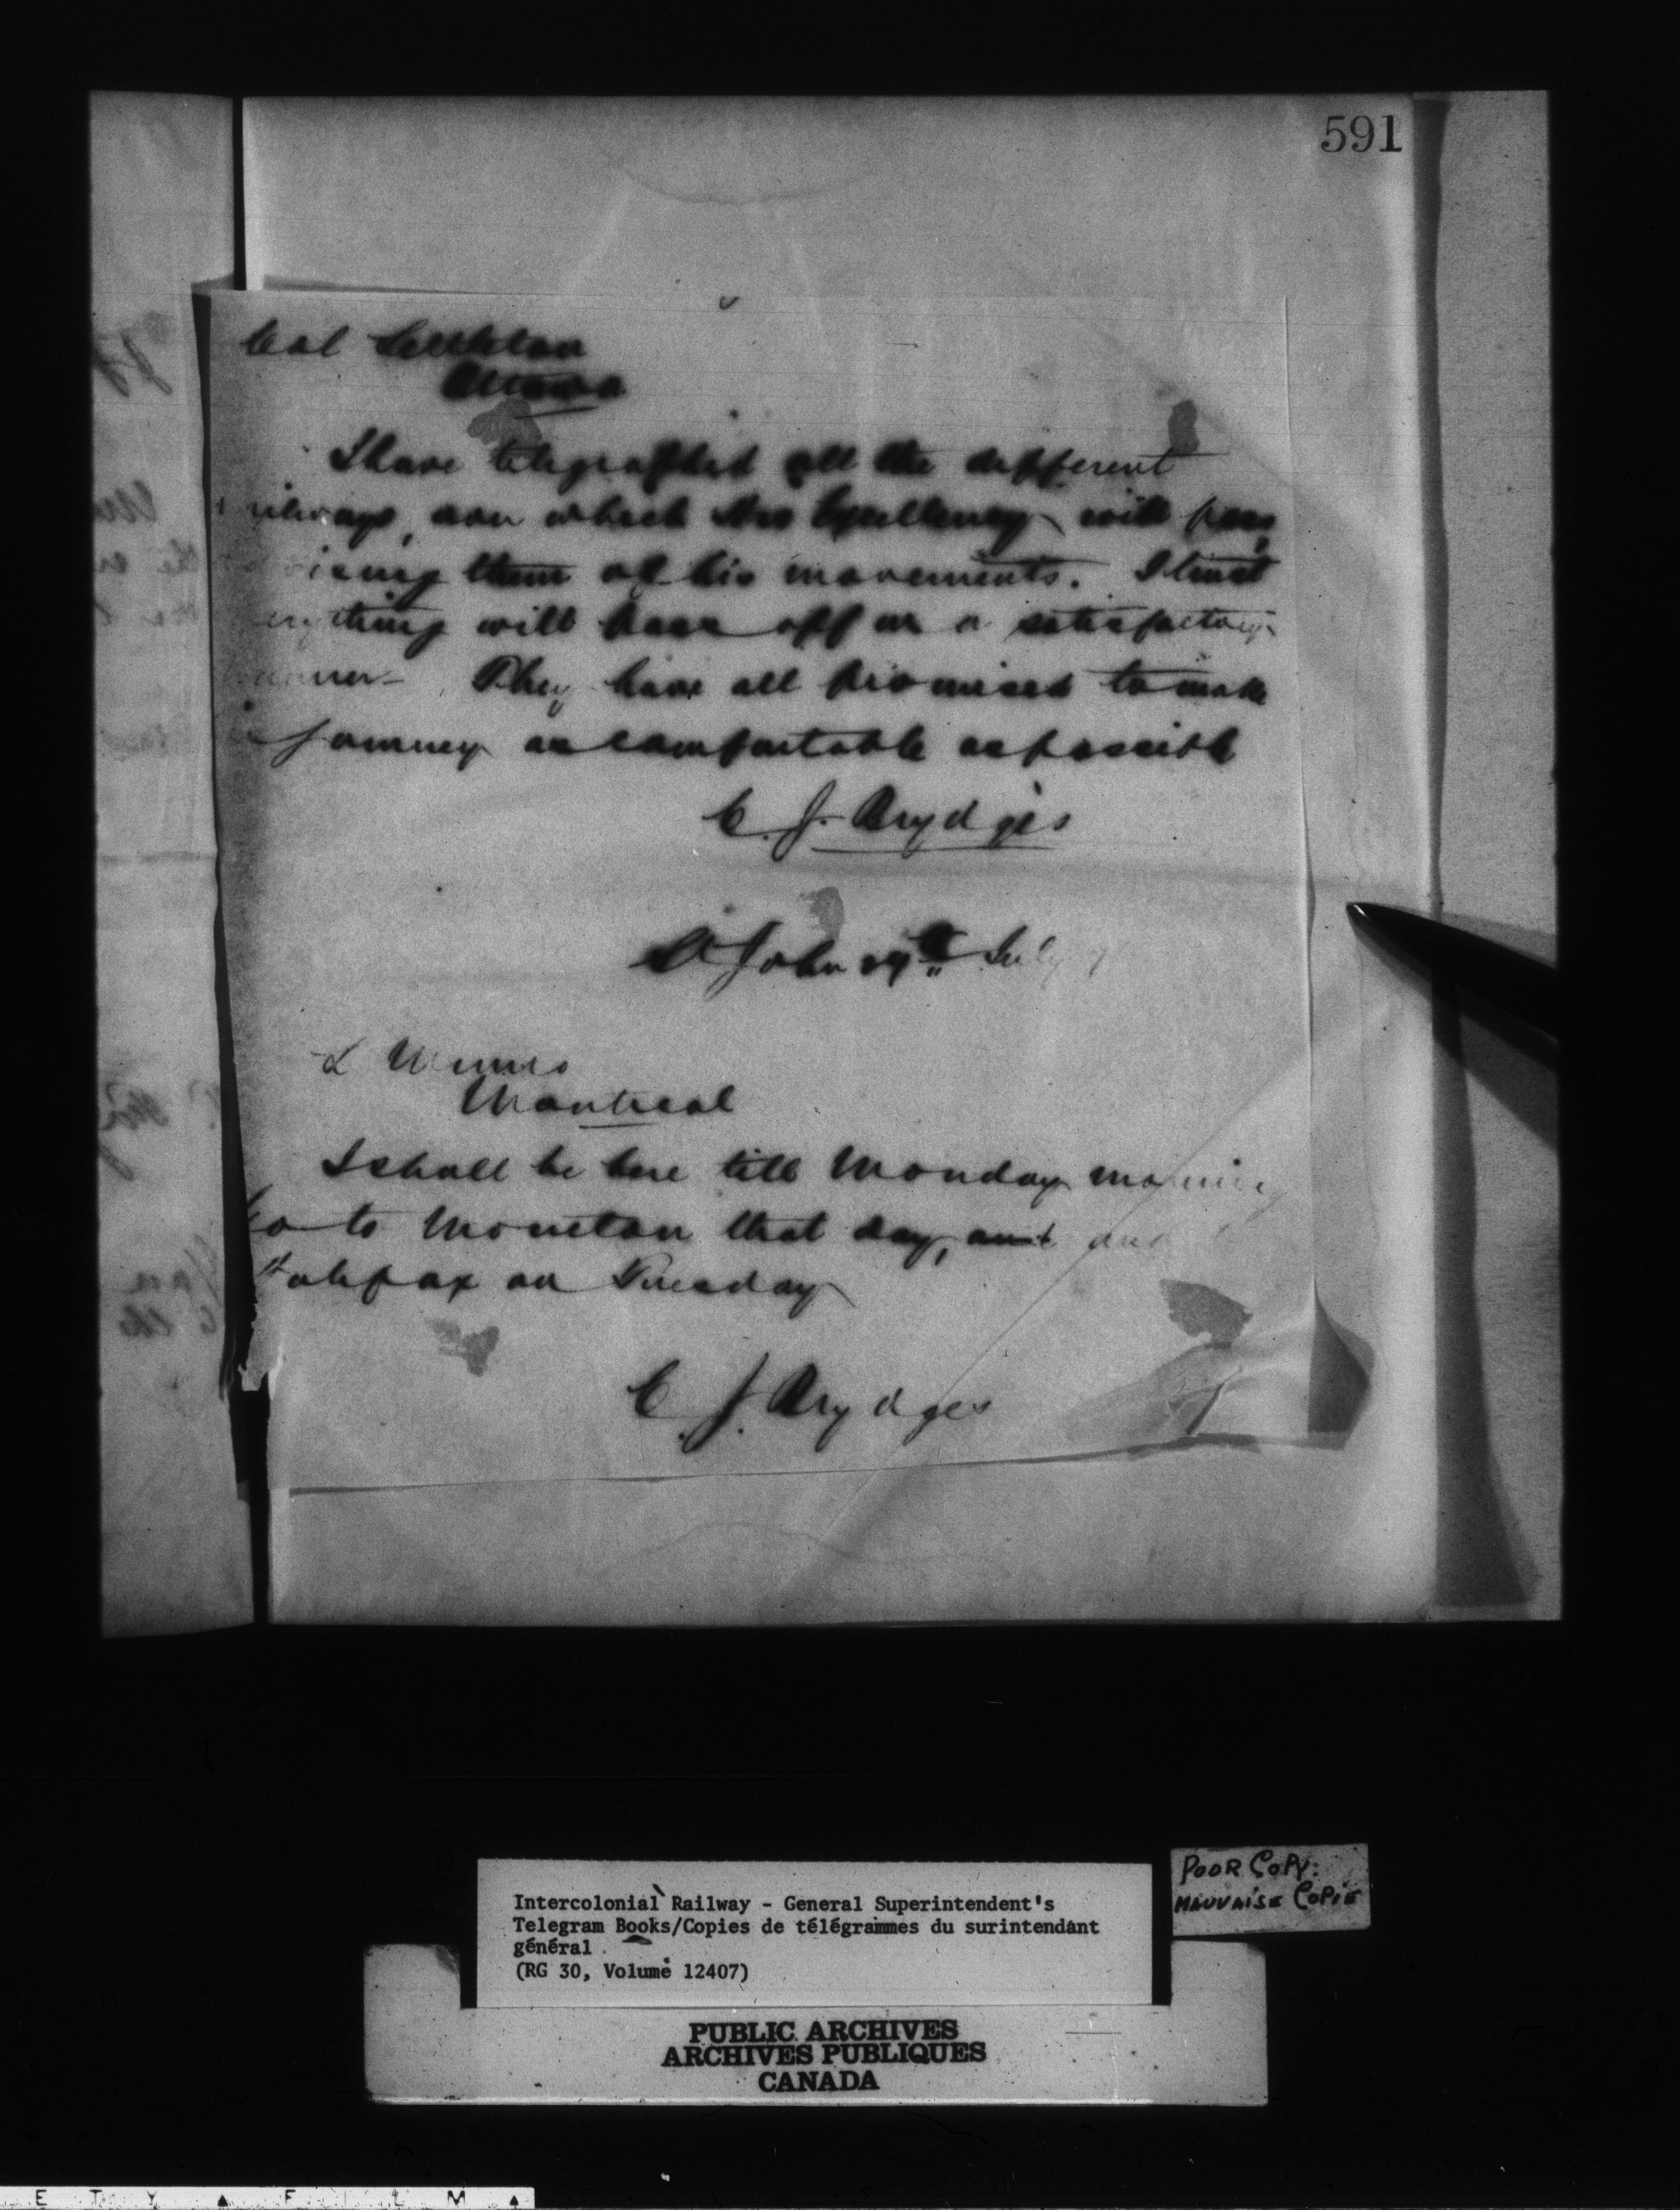 591
Col Littleton
Ottawa
I have telegraphed all the different
ilways, over which His Excellency will pass,
ising them of his movements. I trust
erything will pass off in a satisfactory
anner. They have all promised to make
journey as comfortable as possible
C. J. Brydges
St John 29th July
Montreal
I shall be here till Monday morning
Go to Moncton that day, and
Halifax on Tuesday
C. J. Brydges
POOR COPY:
MAUVAISE COPIE
Intercolonial Railway - General Superintendent's
Telegram Books/Copies de télégrammes du surintendant
général
(RG 30, Volume 12407)
PUBLIC ARCHIVES
ARCHIVES PUBLIQUES
CANADA
E T Y ▲ F I L M ▲